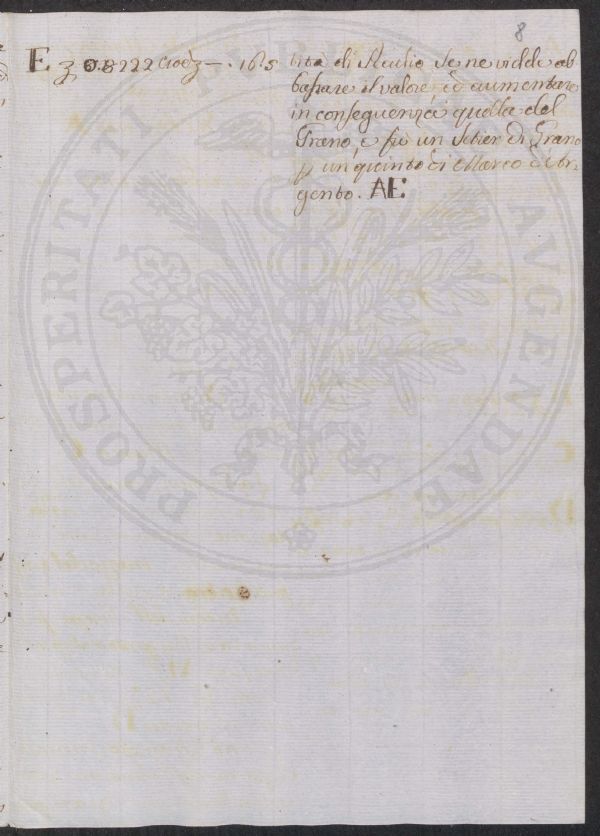 8
E 0.8222 cioè — 165
tità di se ne vidde ab-
bassare il valore, ed aumentare
in conseguenza quella del
Grano, e fù un Setier di Grano
p un quinto di Marco d'Ar-
gento. AE
PROSPERITATI PUBLICAE AUGENDAE